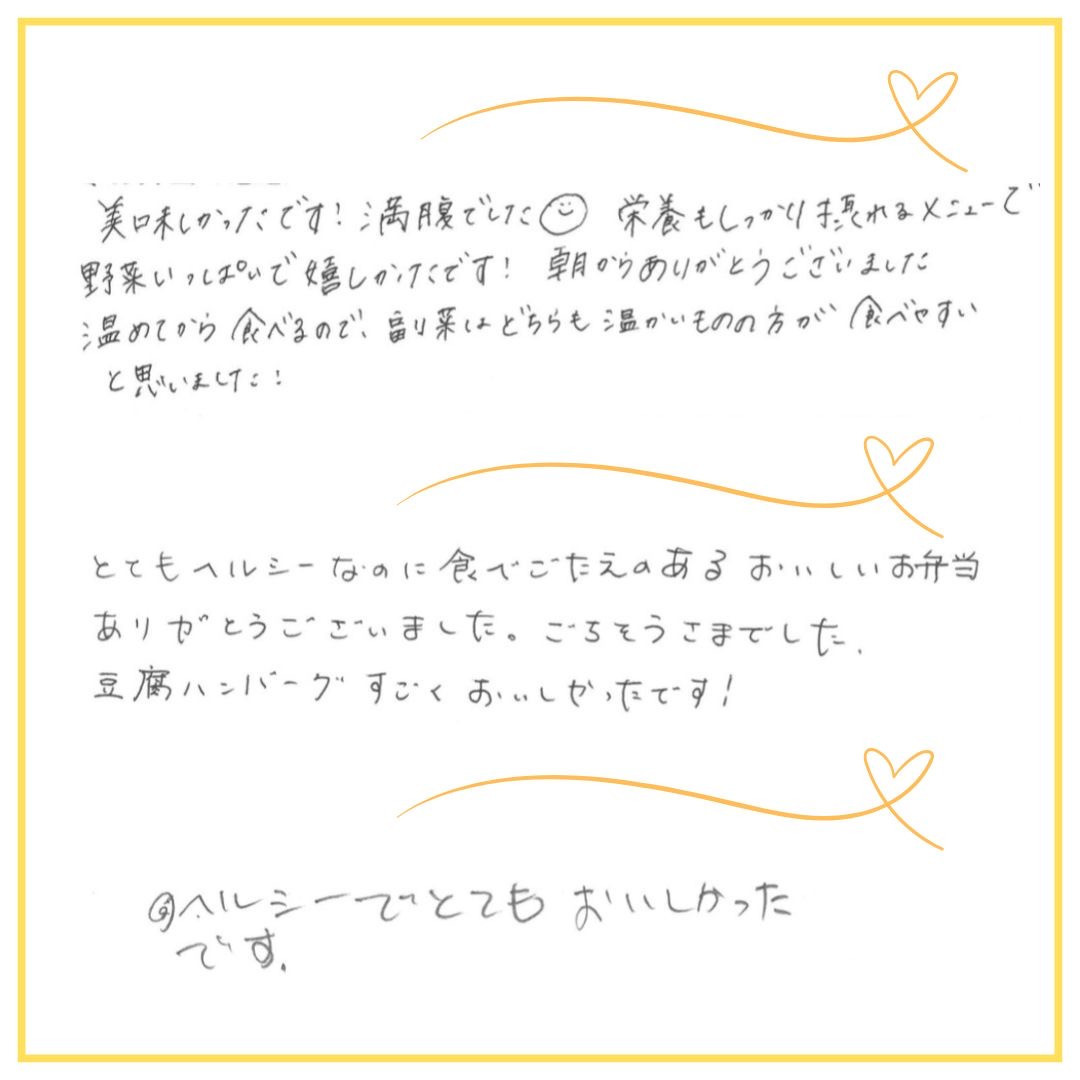 美味しかったです！満腹でした☺ 栄養もしっかり摂れるメニューで
野菜いっぱいで嬉しかったです！ 朝からありがとうございました
温めてから食べるので、副菜はどちらも温かいものの方が食べやすい
と思いました！
とてもヘルシーなのに食べごたえのあるおいしいお弁当
ありがとうございました。ごちそうさまでした.
豆腐ハンバーグすごくおいしかったです！
ヘルシーでとてもおいしかった
です.